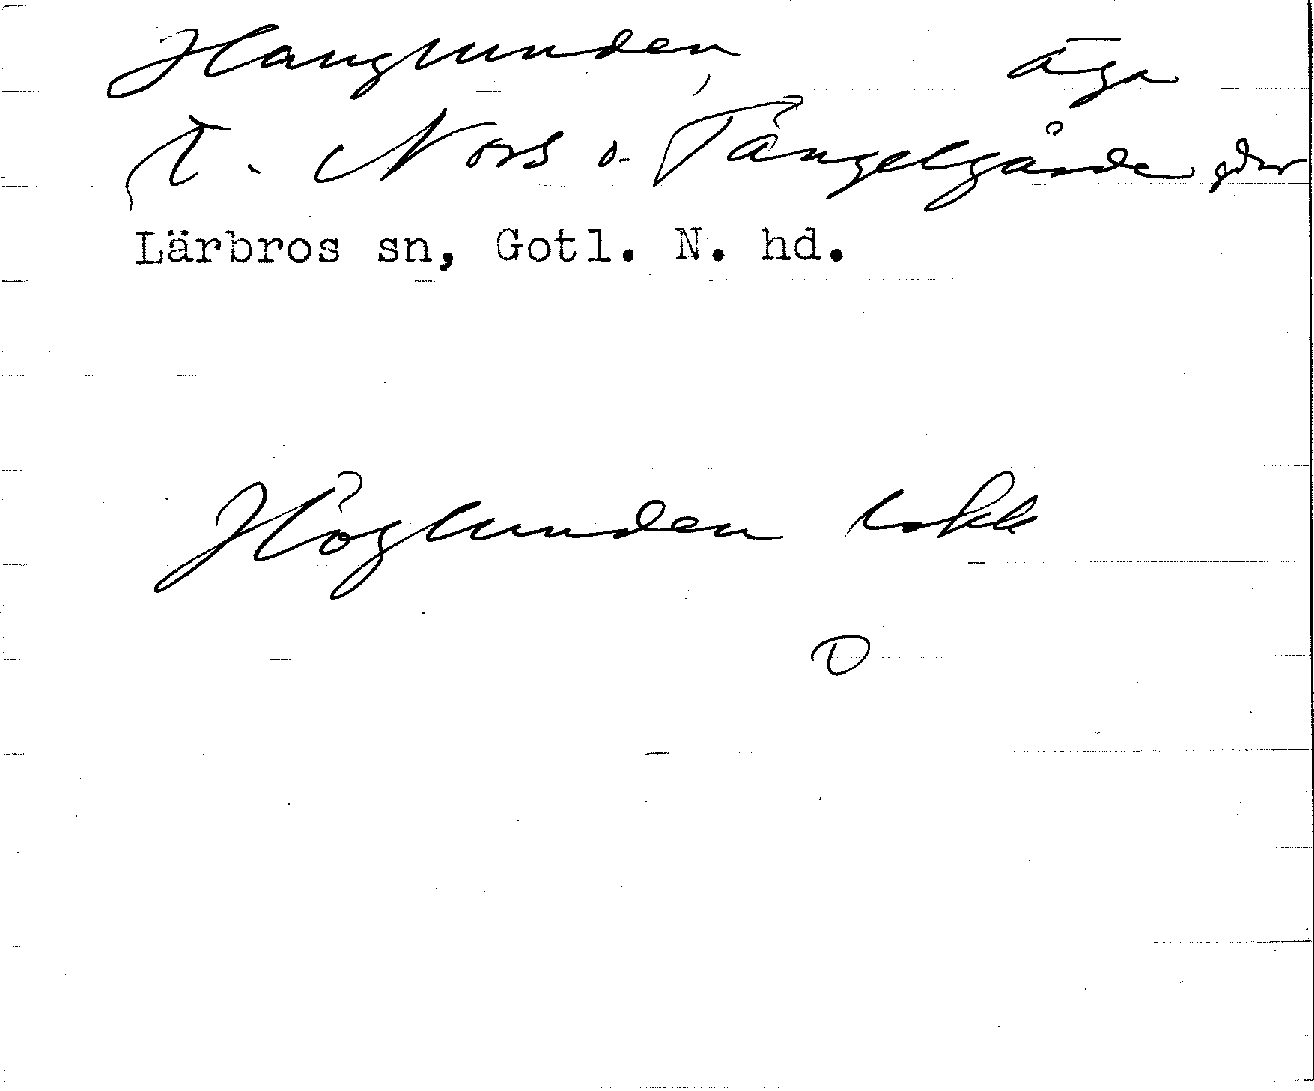 Hauglunden, äga
t. Nors o. Tängelgårde gdr
Lärbros sn, Gotl. N. hd.
Höglunden